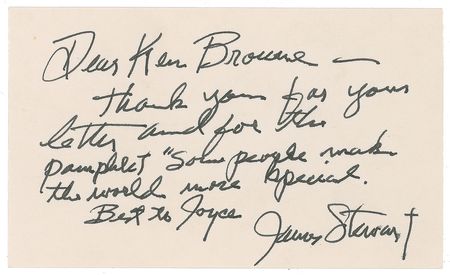 Dear Ken Browne —
Thank you for your
letter and for the
pamphlet "Some people make
the world more special.
Best to Joyce
James Stewart